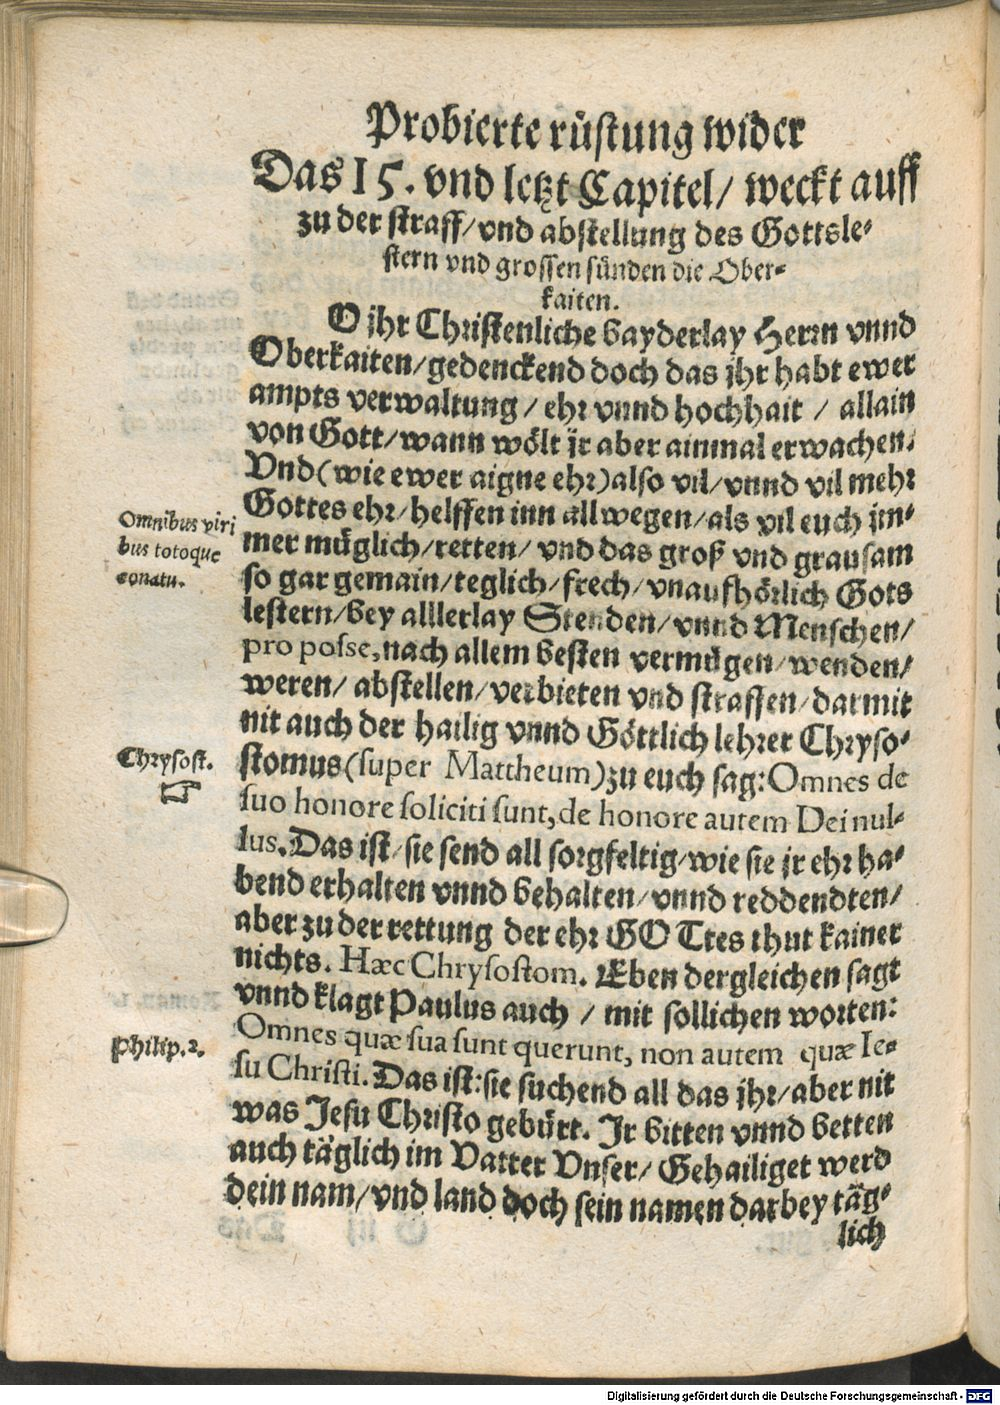 Probierte rüstung wider
Das 15. vnd letzt Capitel/ weckt auff
zu der straff/vnd abstellung des Gottsle⸗
stern vnd grossen sünden die Ober⸗
kaiten.
O jhr Christenliche bayderlay Herrn vnnd
Oberkaiten/gedenckend doch das jhr habt ewer
ampts verwaltung / ehr vnnd hochhait / allain
von Gott/wann wölt jr aber ainmal erwachen.
Vnd(wie ewer aigne ehr)also vil/vnnd vil mehr
Gottes ehr/helffen inn allwegen/als vil euch jm⸗
Omnibus viri
bus totoque
conatu.
mer müglich/retten/ vnd das groß vnd grausam
so gar gemain/teglich/frech/vnaufhörlich Gots
lestern/bey alllerlay Stenden/vnnd Menschen/
pro posse,nach allem besten vermügen/wenden/
weren/ abstellen/verbieten vnd straffen/darmit
nit auch der hailig vnnd Göttlich lehrer Chryso⸗
Chrysost.
stomus(super Mattheum)zu euch sag:Omnes de
suo honore soliciti sunt,de honore autem Dei nul⸗
lus.Das ist/sie send all sorgfeltig/wie sie jr ehr ha⸗
bend erhalten vnnd behalten/vnnd reddendten/
aber zu der rettung der ehr GOTtes thut kainer
nichts. Hæc Chrysostom. Eben dergleichen sagt
vnnd klagt Paulus auch / mit sollichen worten:
Philip.2.
Omnes quæ sua sunt querunt, non autem quæ Ie⸗
su Christi.Das ist:sie suchend all das jhr/aber nit
was Jesu Christo gebürt. Jr bitten vnnd betten
auch täglich im Vatter Vnser/ Gehailiget werd
dein nam/vnd land doch sein namen darbey täg⸗
lich
Digitalisierung gefördert durch die Deutsche Forschungsgemeinschaft - DFG